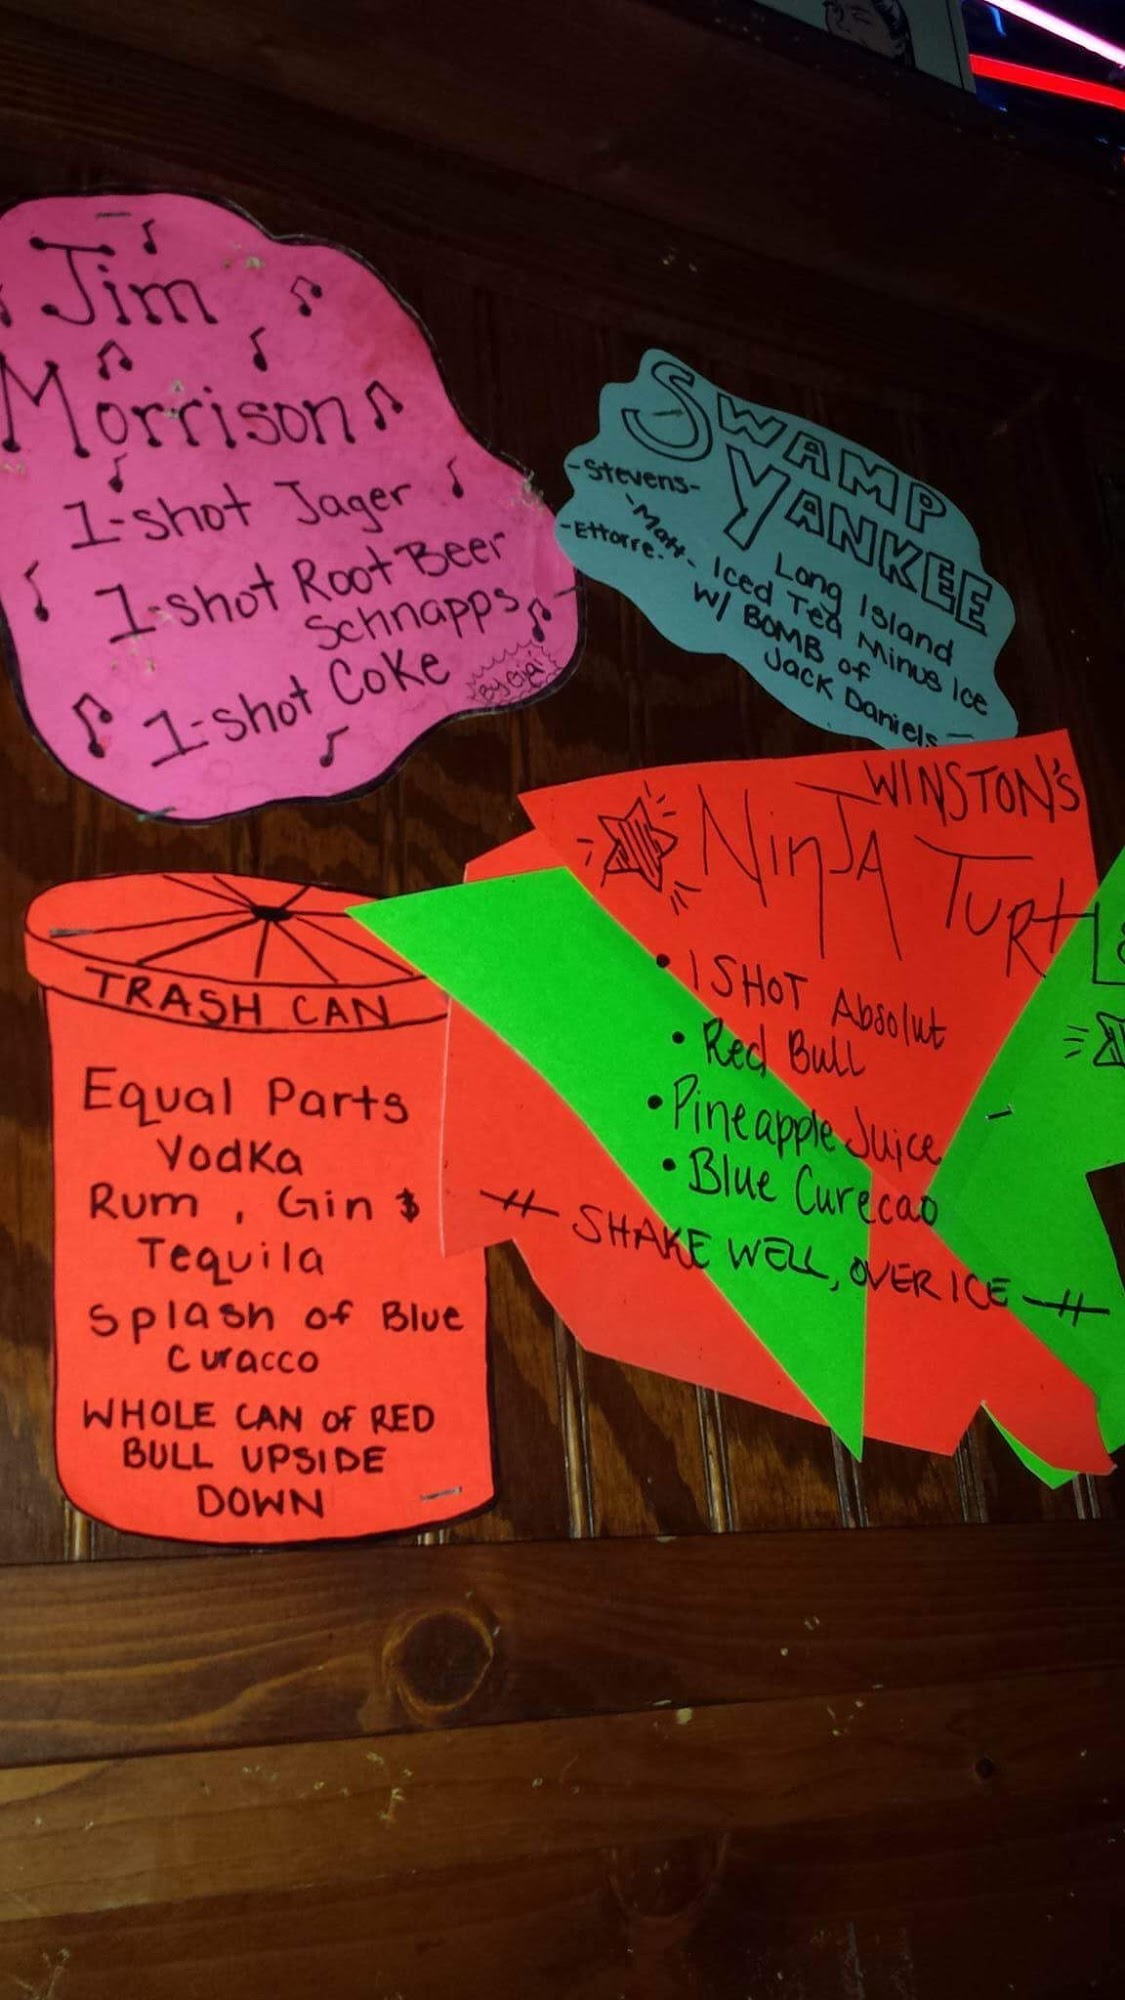 Jim
Morrison
1-shot Jager
1-shot Root Beer
Schnapps
1-shot Coke
SWAMP
YANKEE
-Stevens-
Matt
-Ettorre-
Long Island
Iced Tea Minus Ice
W/ BOMB of
Jack Daniels
WINSTON'S
NinJA TURTL
• 1 SHOT Absolut
• Red Bull
• Pineapple Juice
• Blue Curecao
SHAKE WELL, OVER ICE
TRASH CAN
Equal Parts
Vodka
Rum , Gin $
Tequila
Splash of Blue
Curacco
WHOLE CAN of RED
BULL UPSIDE
DOWN